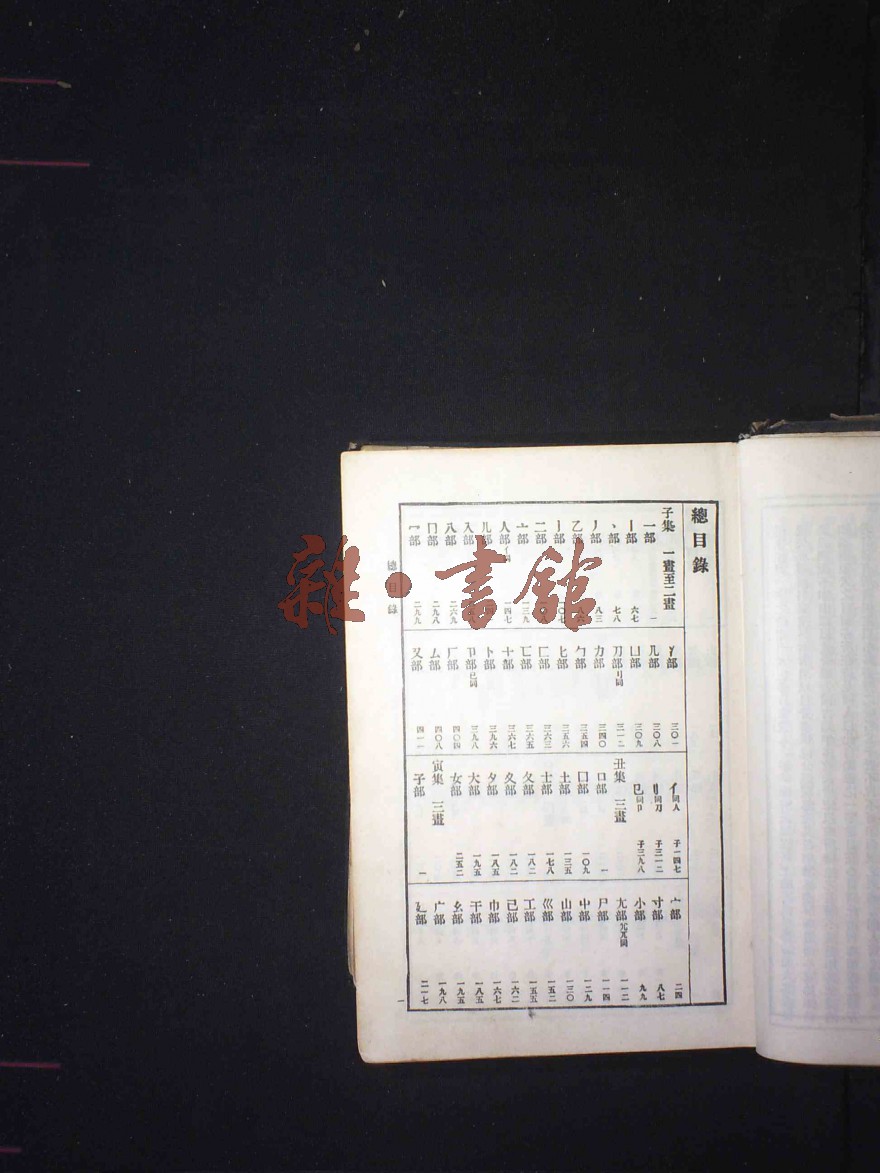 總目錄
子集 一畫至二畫
一部 一
丨部 六七
丶部 七八
丿部 八三
乙部
亅部
二部
亠部 一三九
人部 一四七
儿部
入部
八部 二六九
冂部 二九八
冖部 二九九
冫部 三〇一
几部 三〇八
凵部 三〇九
刀部刂同 三一二
力部 三四〇
勹部 三五四
匕部 三五六
匚部 三六三
匸部 三六五
十部 三六七
卜部 三九六
卩部㔾同 三九八
厂部 四〇四
厶部 四〇八
又部 四一一
亻同人 子一四七
刂同刀 子三一二
㔾同卩 子三九八
丑集 三畫
口部 一
囗部 一〇九
土部 一三五
士部 一七八
夂部 一八二
夊部 一八二
夕部 一八五
大部 一九五
女部 二五二
寅集 三畫
子部 一
宀部 二四
寸部 八七
小部 九九
尢部 一一二
尸部 一一四
屮部 一二九
山部 一三〇
巛部 一五二
工部 一五五
己部 一六二
巾部 一六七
干部 一八五
幺部 一九五
广部 一九八
廴部 二一七
總目錄
一
雜·書館